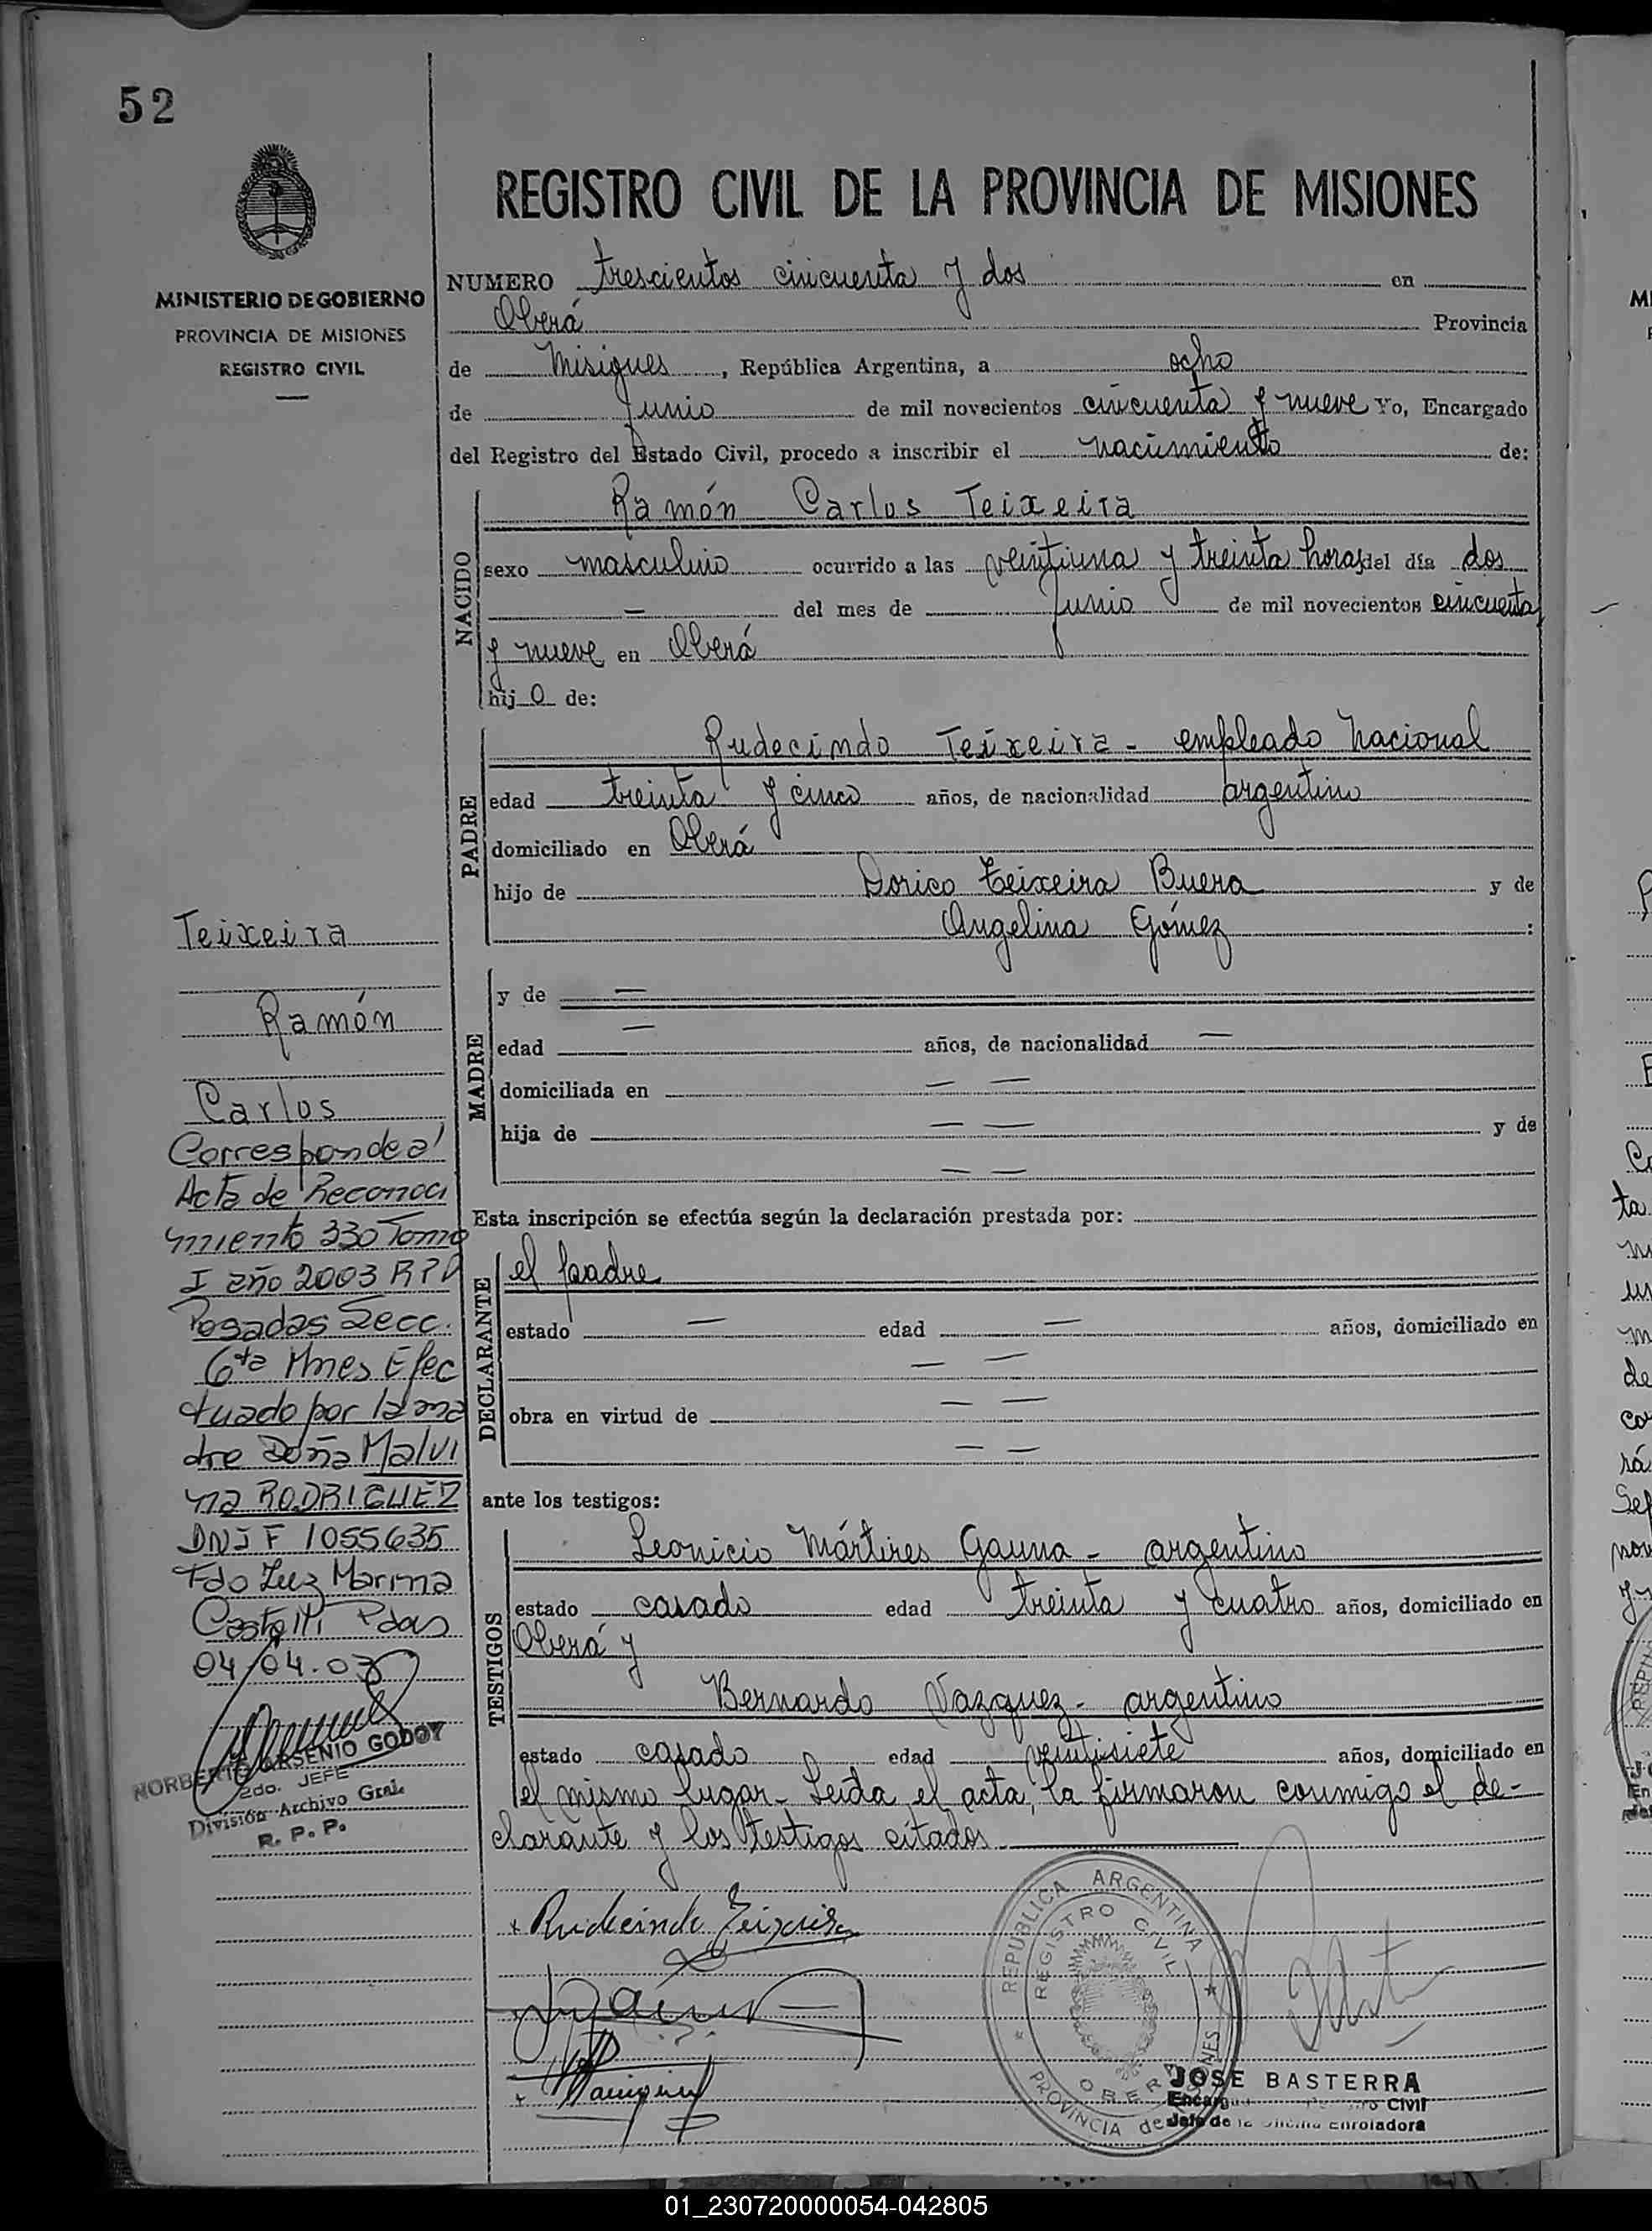 52
REGISTRO CIVIL DE LA PROVINCIA DE MISIONES
MINISTERIO DE GOBIERNO
PROVINCIA DE MISIONES
REGISTRO CIVIL
NUMERO trescientos cincuenta y dos en
Oberá Provincia
de Misiones, República Argentina, a ocho
de Junio de mil novecientos cincuenta y nueve Yo, Encargado
del Registro del Estado Civil, procedo a inscribir el nacimiento de:
NACIDO
Ramón Carlos Teixeira
sexo masculino ocurrido a las veintiuna y treinta horas del día dos
— del mes de Junio de mil novecientos cincuenta
y nueve en Oberá
hijo de:
PADRE
Rudecindo Teixeira - empleado Nacional
edad treinta y cinco años, de nacionalidad argentino
domiciliado en Oberá
hijo de Dorico Teixeira Buera y de
Angelina Gómez :
MADRE
y de —
edad — años, de nacionalidad —
domiciliada en — —
hija de — — y de
— —
Esta inscripción se efectúa según la declaración prestada por:
DECLARANTE
el padre
estado — edad — años, domiciliado en
— —
— —
obra en virtud de
— —
ante los testigos:
TESTIGOS
Leonicio Mártires Gauna - argentino
estado casado edad treinta y cuatro años, domiciliado en
Oberá y
Bernardo Vazquez - argentino
estado casado edad veintisiete años, domiciliado en
el mismo lugar - Leída el acta, la firmaron conmigo el de-
clarante y los testigos citados
Teixeira
Ramón
Carlos
Corresponde al
Acta de Reconoci
miento 330 Tomo
I año 2003 RPP
Posadas Secc.
6ta Mnes Efec
tuado por la ma
dre Doña Malvi
na RODRIGUEZ
DNI F 1055635
Fdo Luz Marina
Castelli Pdas
04/04.03
NORBERTO ARSENIO GODOY
2do. JEFE
División Archivo Gral.
R. P. P.
Rudecindo Teixeira
REPUBLICA ARGENTINA
REGISTRO CIVIL
OBERA
PROVINCIA de MISIONES
JOSE BASTERRA
Encargado Civil
Jefe de la Oficina Enroladora
01_230720000054-042805